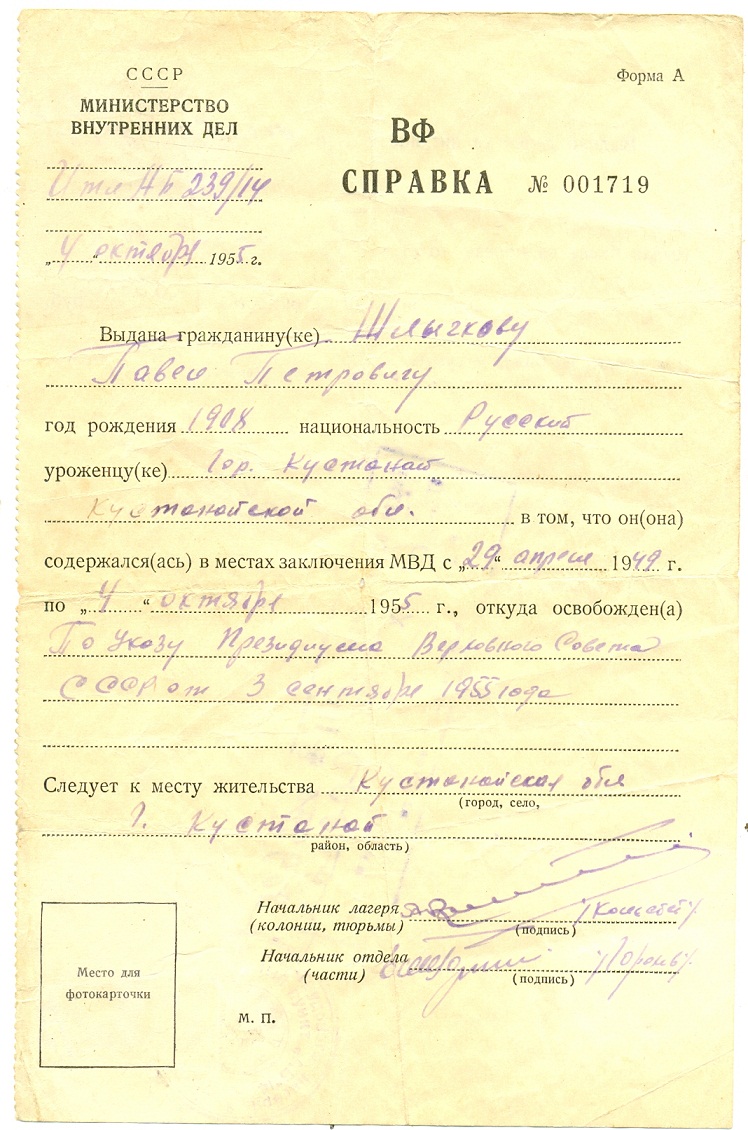 СССР
МИНИСТЕРСТВО
ВНУТРЕННИХ ДЕЛ
Форма А
ВФ
СПРАВКА № 001719
239/14
„4“ октября 1955 г.
Выдана гражданину(ке) Шлычкову
Павел Петровичу
год рождения 1908 национальность Русский
уроженцу(ке) Гор. Кустанай
Кустанайской обл. в том, что он(она)
содержался(ась) в местах заключения МВД с „29“ апреля 1949 г.
по „4“ октября 1955 г., откуда освобожден(а)
По Указу Президиума Верховного Совета
СССР от 3 сентября 1955 года
Следует к месту жительства Кустанайская обл
(город, село,
г. Кустанай
район, область)
Начальник лагеря
(колонии, тюрьмы)
(подпись)
Начальник отдела
(части)
(подпись)
Место для
фотокарточки
М. П.